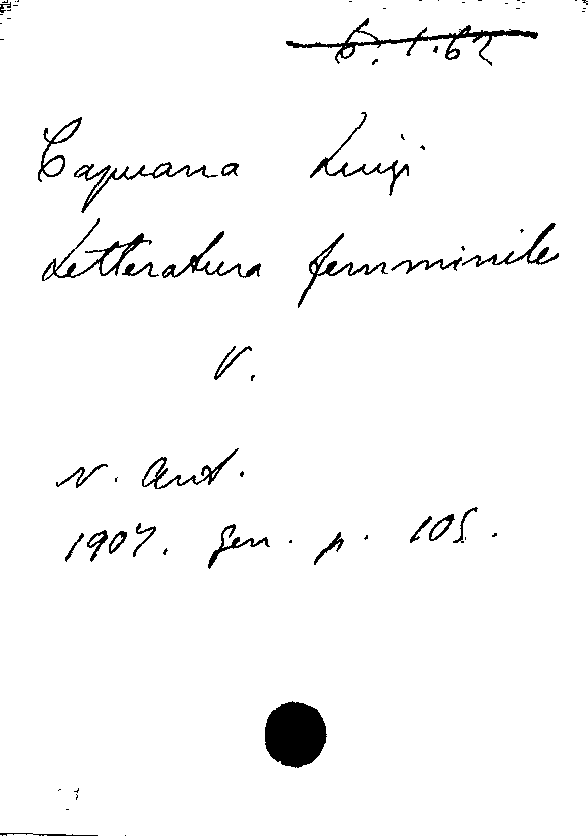 6.1.62
Capuana Luigi
Letteratura femminile
V.
N. Ant.
1907. gen. p. 105.